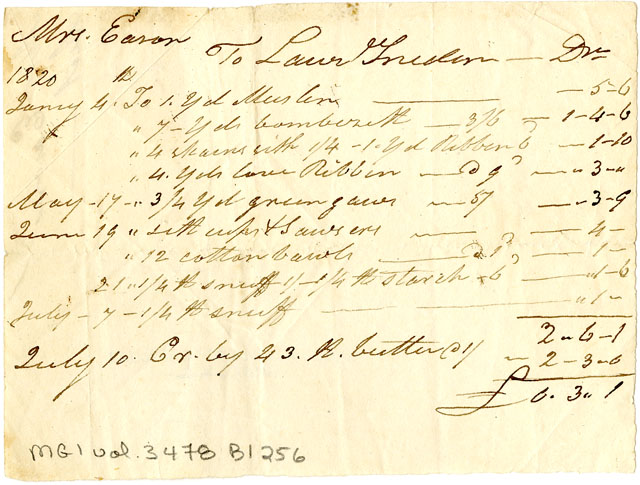 Mrs. Eason
To Lawr Sneden — Dr
1820
Janry 4th To 1. Yd Muslin — 5-6
" 7 - Yds bombozett — 3/6 — 1-4-6
" 4 skains silk 1/4 - 1. Yd Ribbon 6d — 1-10
" 4. Yds love Ribbon — @ 9d — 3-"
May - 17 - " 3/4 Yd green gaus — 5/ — 3-9
June 19 " Sett cups & Sawsers — 4-
" 12 cotton bawls — @ 1d — 1-
21 " 1/4 lb snuff 1/- 1/4 lb starch - 6d — "1-6
July - 7 - 1/4 lb snuff — "1-
2 " 6-1
July 10. Cr. by 43. lb. butter @ 1/ — 2-3-0
£ 0.3"1
MG1 vol. 3478 B1256